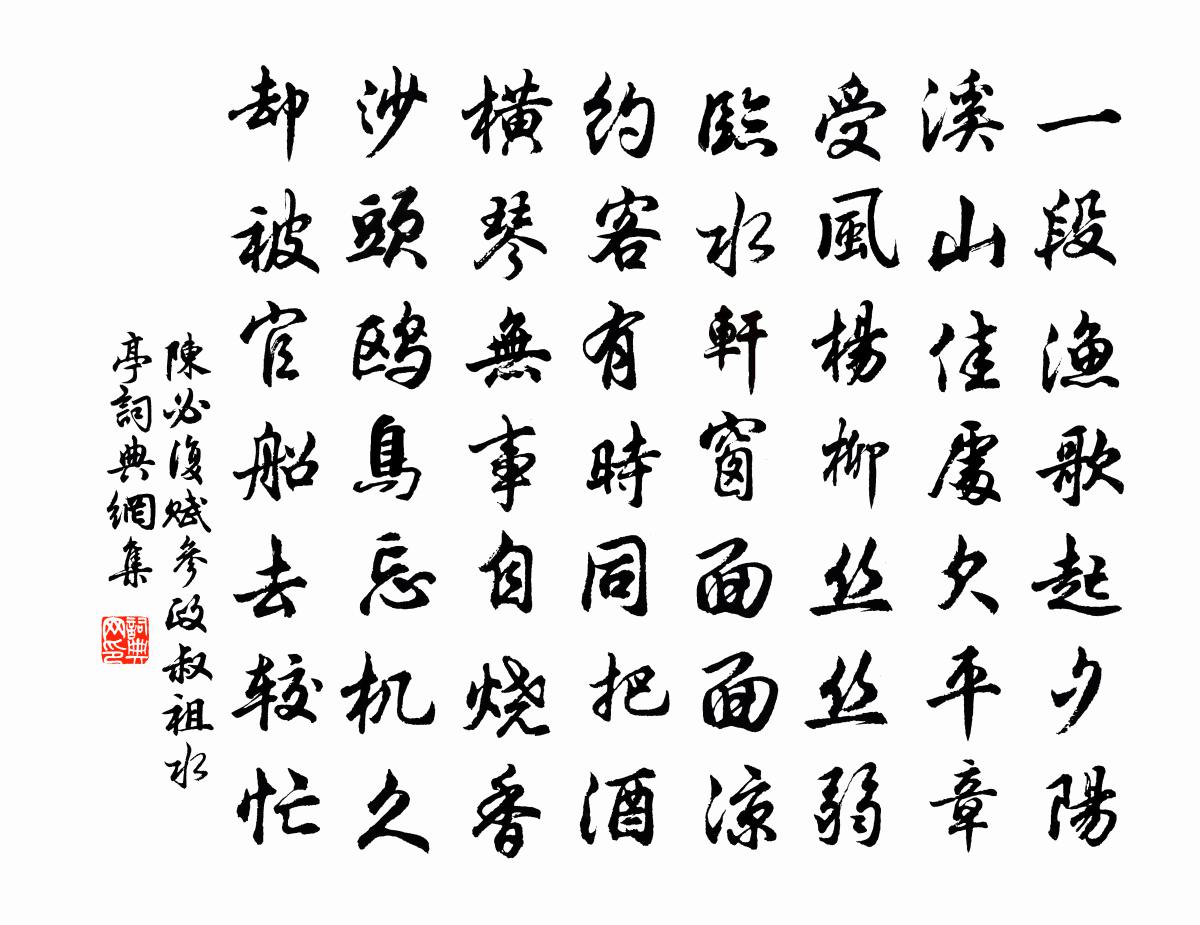 一段漁歌起夕陽
溪山佳處欠平章
受風楊柳丝丝弱
臨水軒窗面面涼
約客有時同把酒
橫琴無事自燒香
沙頭鸥鳥忘机久
却被官船去较忙
陳必復赋參政叔祖水
亭詞典網集
詞典网印